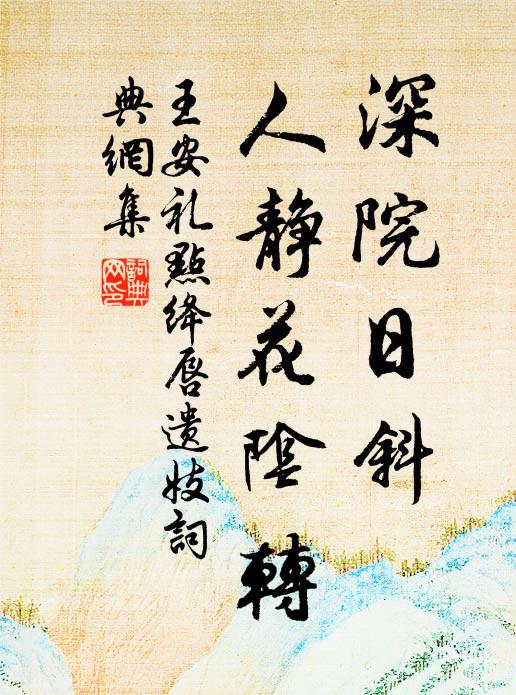 深院日斜
人靜花陰轉
王安礼點绛唇遺妓詞
典網集
詞典
网印